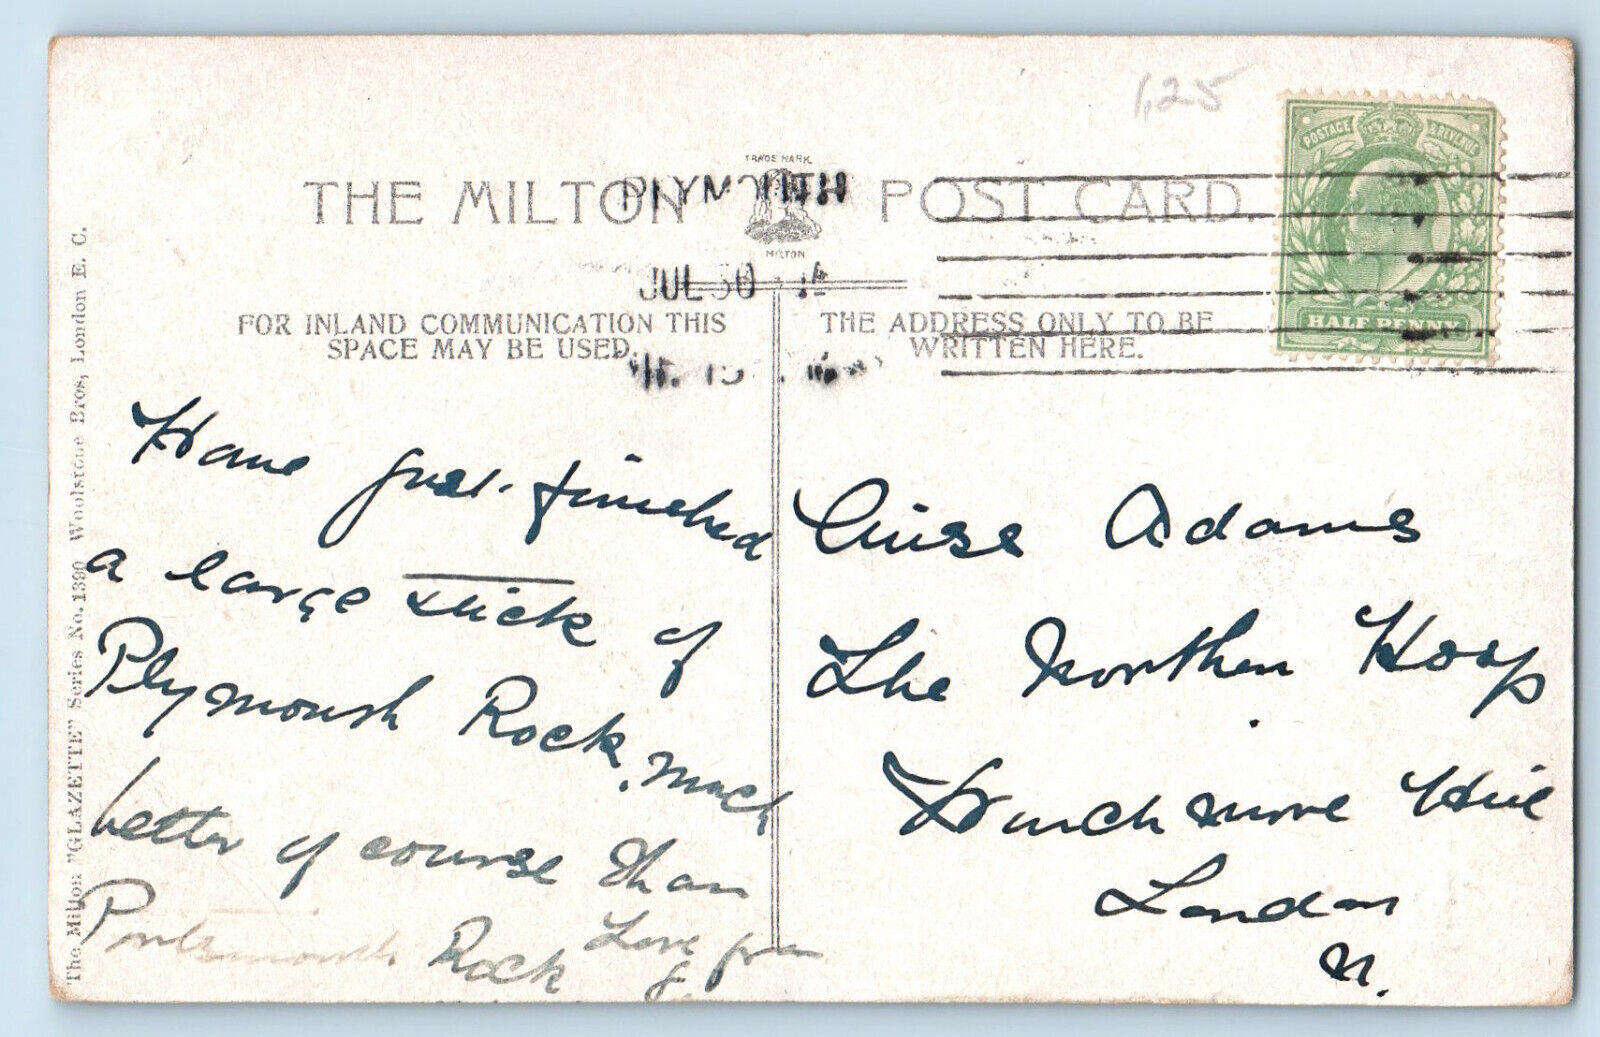 1,25
TRADE MARK
THE MILTON POST CARD.
MILTON
POSTAGE & REVENUE
HALF PENNY
PLYMOUTH
JUL 30
FOR INLAND COMMUNICATION THIS
SPACE MAY BE USED.
THE ADDRESS ONLY TO BE
WRITTEN HERE.
The Milton "GLAZETTE" Series No. 1390 Woolstone Bros, London E. C.
Have just finished
a large stick of
Plymouth Rock. Much
better of course than
Portsmouth Rock
Love from
Adams
The Northen Hoop
Winchmore Hill
London
N.